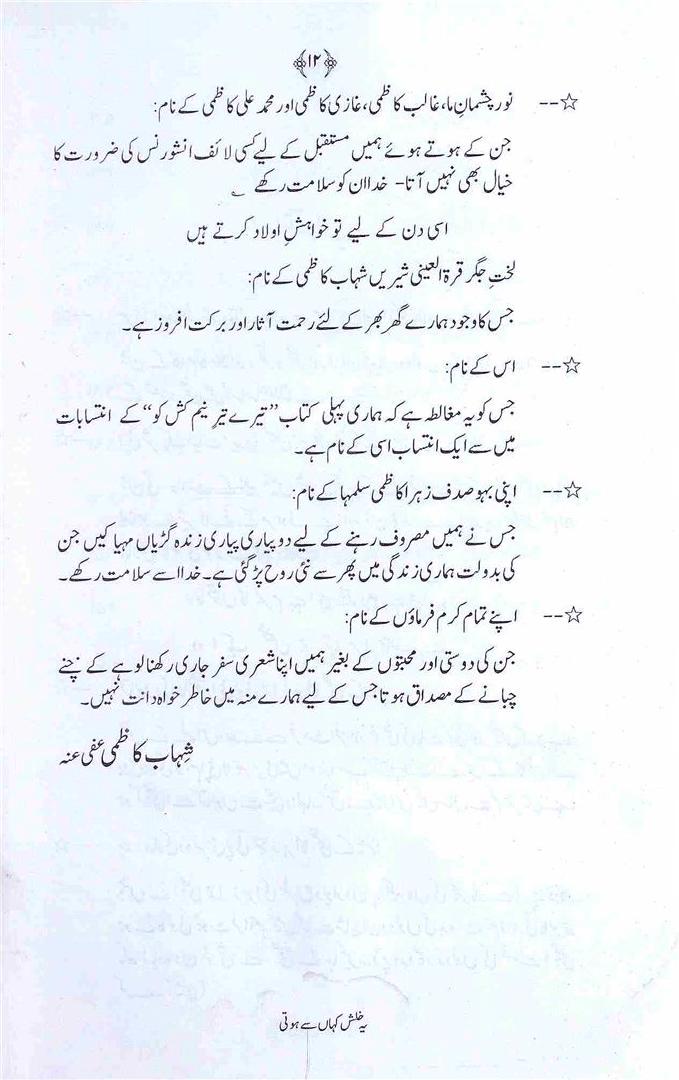 ﴿۱۲﴾
☆-- نورِ چشمانِ ما، غالب کاظمی، غازی کاظمی اور محمد علی کاظمی کے نام:
جن کے ہوتے ہوئے ہمیں مستقبل کے لیے کسی لائف انشورنس کی ضرورت کا
خیال بھی نہیں آتا- خدا ان کو سلامت رکھے ؎
اسی دن کے لیے تو خواہشِ اولاد کرتے ہیں
لختِ جگر قرۃ العینی شیریں شہاب کاظمی کے نام:
جس کا وجود ہمارے گھر بھر کے لئے رحمت آثار اور برکت افروز ہے۔
☆-- اس کے نام:
جس کو یہ مغالطہ ہے کہ ہماری پہلی کتاب ”تیرے تیرِ نیم کش کو“ کے انتسابات
میں سے ایک انتساب اسی کے نام ہے۔
☆-- اپنی بہو صدف زہرا کاظمی سلمہا کے نام:
جس نے ہمیں مصروف رہنے کے لیے دو پیاری پیاری زندہ گڑیاں مہیا کیں جن
کی بدولت ہماری زندگی میں پھر سے نئی روح پڑ گئی ہے۔ خدا اسے سلامت رکھے۔
☆-- اپنے تمام کرم فرماؤں کے نام:
جن کی دوستی اور محبتوں کے بغیر ہمیں اپنا شعری سفر جاری رکھنا لوہے کے چنے
چبانے کے مصداق ہوتا جس کے لیے ہمارے منہ میں خاطر خواہ دانت نہیں۔
شہاب کاظمی عفی عنہ
یہ خلش کہاں سے ہوتی